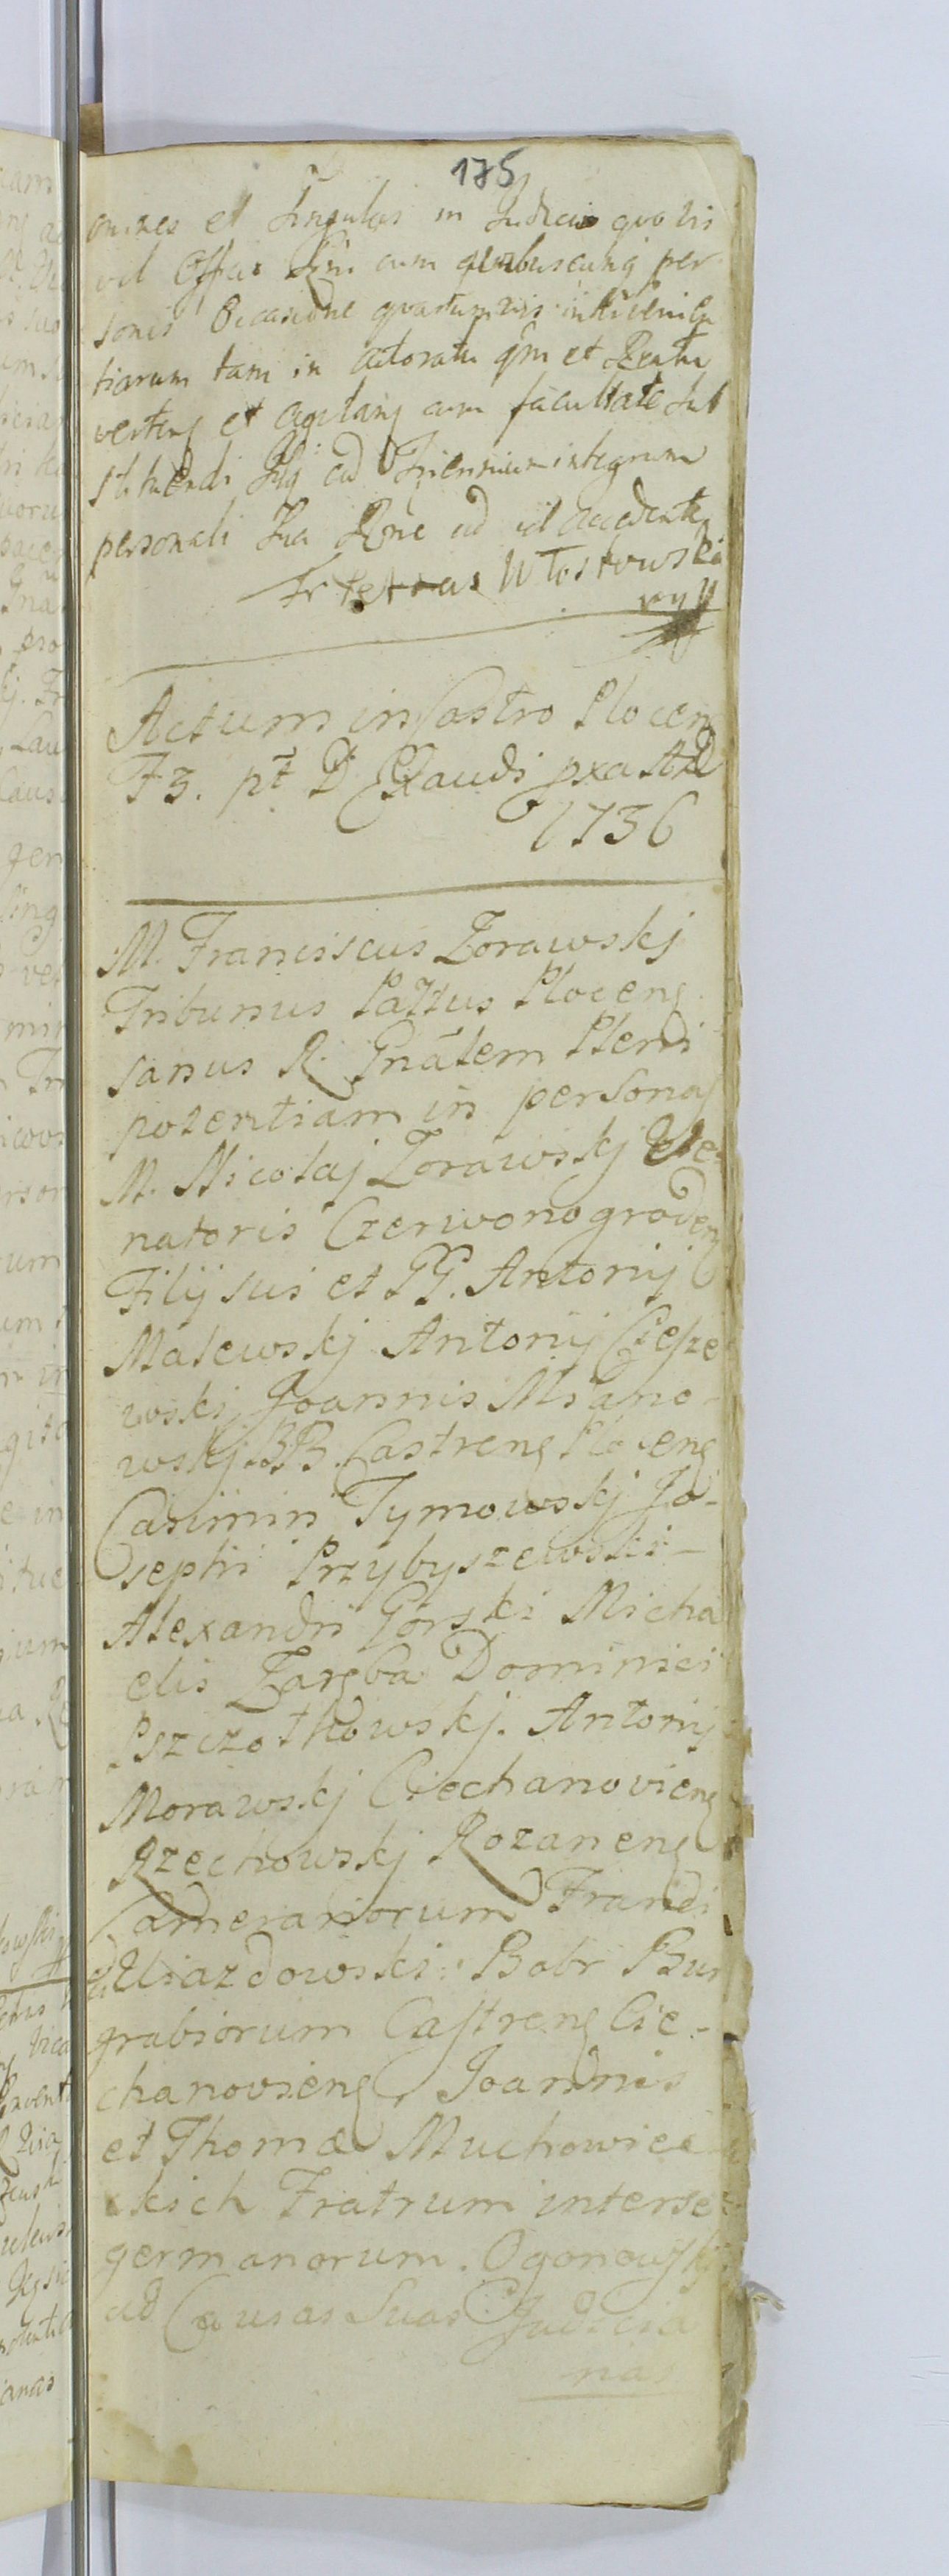 175
omnes et singulas in Judicio quovis
vel Officio cum quibuscunq per
sonis Occasione quarumvis inkvenien
tiarum tam in actoratu qm et Reatu
verteng et agitang cum facultate sub
stituendi ad Triennium integrum
personali sua Rne ad id accedente
Fr Petrus Włostowski
mpp
Actum in Castro Plocen
F3. pt D Exaudi pxa A D
1736
M. Franciscus Zorawskj
Tribunus Pałtus Ploceng
sanus R. Gnalem Pleni
potentiam in personas
M. Nicolaj Zorawskj Ve
natoris Czerwonogroden
Filij sui et GG. Antonij
Malewskj Antonij Ciesze
wskj Joannis Miano-
wskj BB. Castreng Ploceng
Casimiri Tymowskj Jo-
sephi Przybyszewski-
Alexandri Górski Micha
elis Zaręba Dominici
Pszczołkowskj. Antonij
Morawskj Ciechanovieng
Rzechowskj Rozaneng
Camerariorum Francisci
Uiazdowski Bobr Bur
grabiorum Castreng Cie-
chanovieng, Joannis
et Thomæ Muchowiec
kich Fratrum interse
germanorum. Ogonowskj
ad Causas Suas Judicia
nas